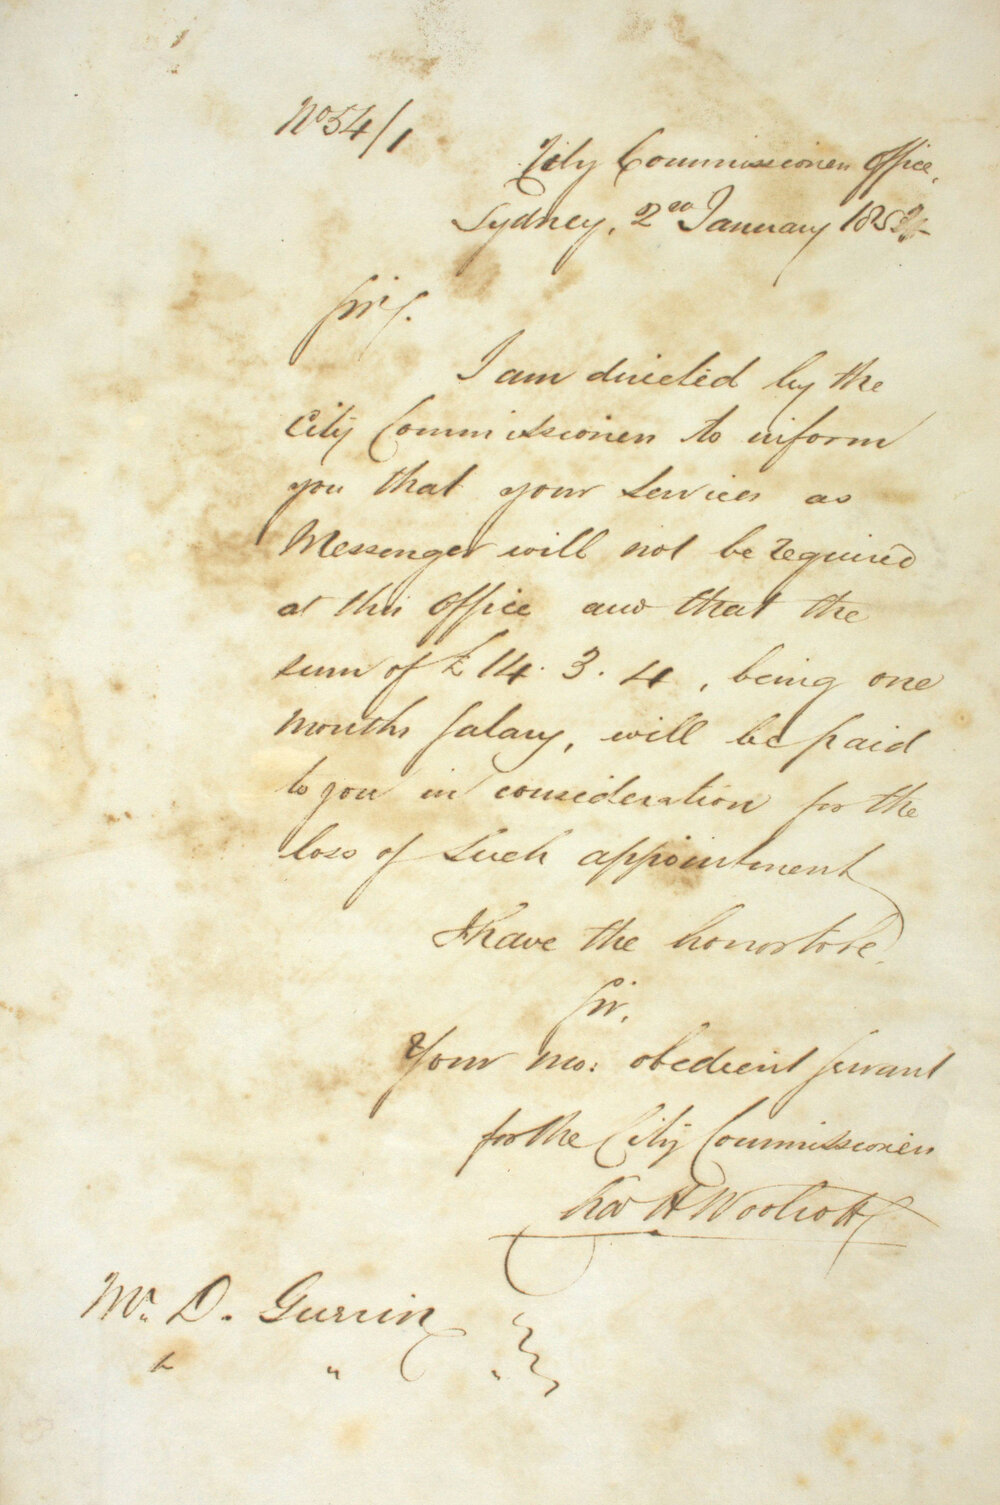 No 54/1
City Commissioners Office,
Sydney, 2nd January 1854
Sir,
I am directed by the
City Commissioners to inform
you that your services as
Messenger will not be required
at this Office and that the
sum of £14.3.4, being one
months salary, will be paid
to you in consideration for the
loss of such appointment
I have the honor to be
Sir,
Your mo: obedient servant
for the City Commissioners
Chas H Woolcott
Mr. D. Gurrin